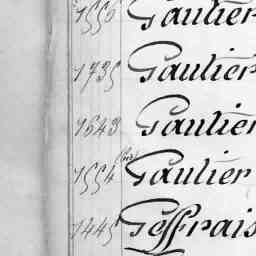 1556 Gaultier
1735 Gaultier
1643 Gaultier
1554 (bis) Gaultier
1445 Geffrais